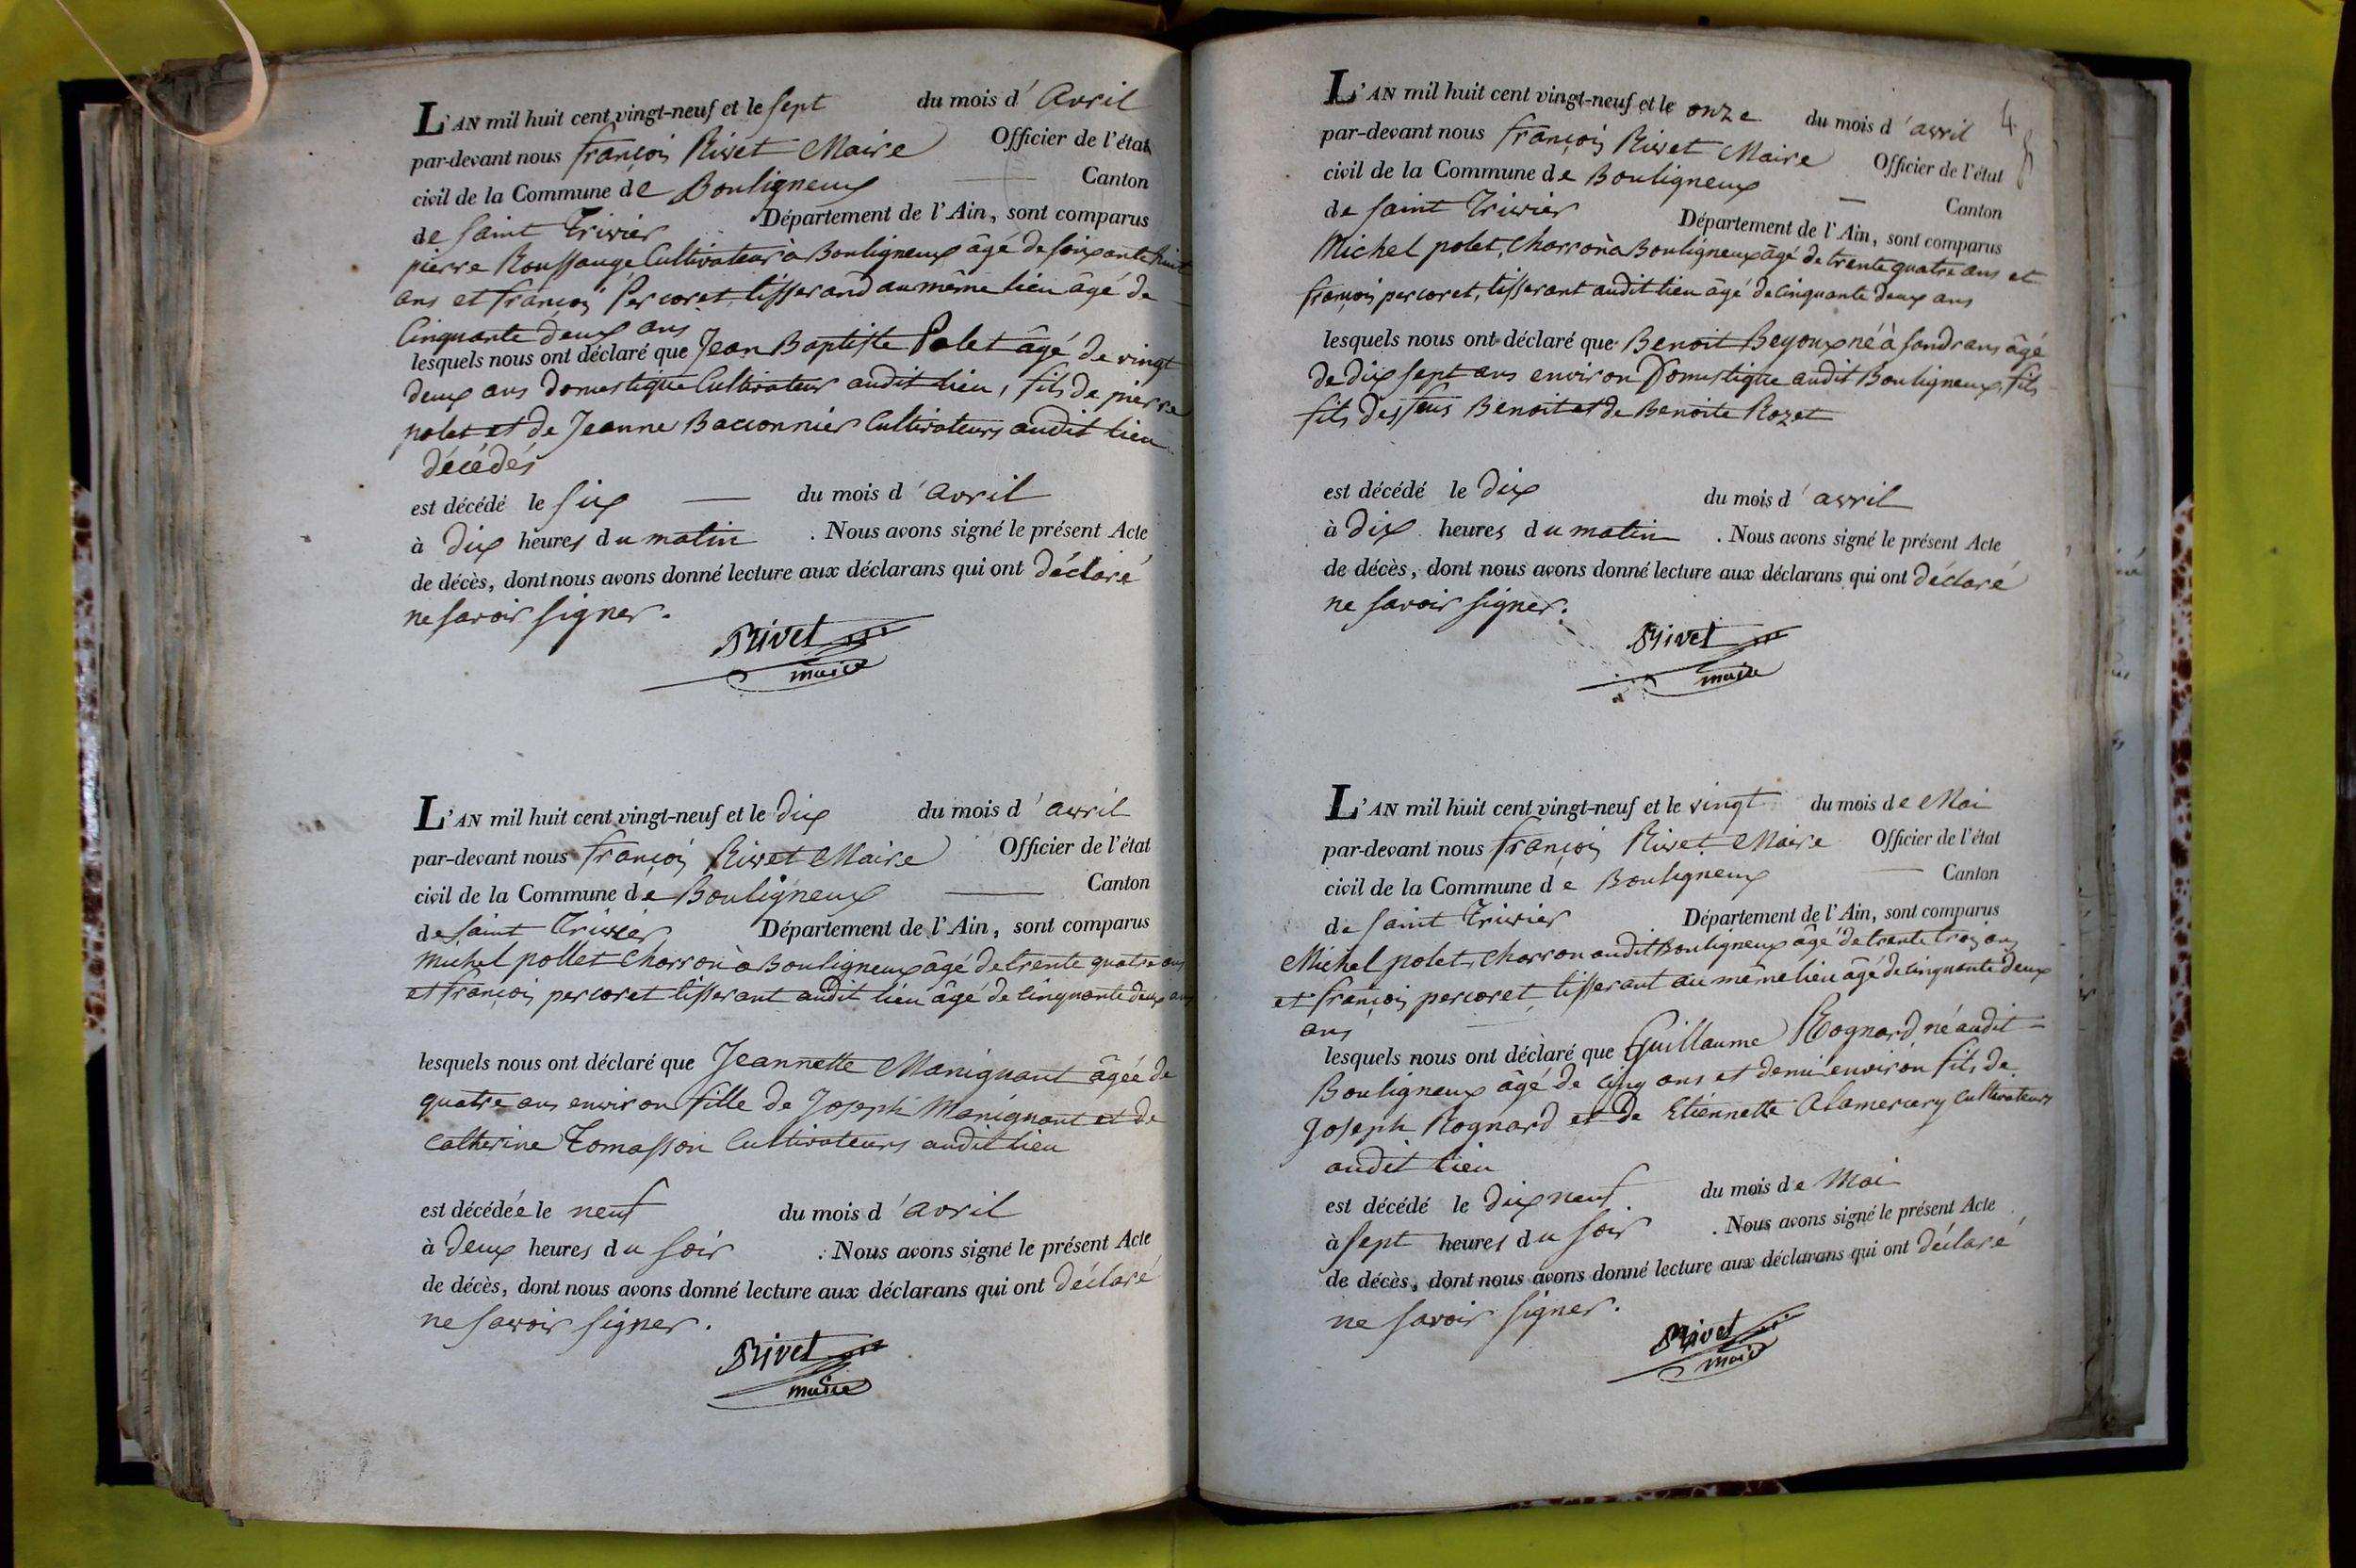 L'AN mil huit cent vingt-neuf et le sept du mois d'Avril
par-devant nous françois Rivet Maire Officier de l'état
civil de la Commune de Bouligneux Canton
de saint Trivier Département de l'Ain, sont comparus
pierre Roussange Cultivateur à Bouligneux âgé de soixante huit
ans et françois Percoret, tisserand au même lieu âgé de
Cinquante deux ans
lesquels nous ont déclaré que Jean Baptiste Polet âgé de vingt
deux ans domestique Cultivateur audit lieu, fils de pierre
polet et de Jeanne Bacconnier Cultivateurs audit lieu
décédés
est décédé le six du mois d'avril
à dix heures du matin . Nous avons signé le présent Acte
de décès, dont nous avons donné lecture aux déclarans qui ont déclaré
ne savoir signer.
Rivet
maire
L'AN mil huit cent vingt-neuf et le dix du mois d'avril
par-devant nous françois Rivet Maire Officier de l'état
civil de la Commune de Bouligneux Canton
de saint Trivier Département de l'Ain, sont comparus
Michel pollet Charron à Bouligneux âgé de trente quatre ans
et françois percoret tisserant audit lieu âgé de cinquante deux ans
lesquels nous ont déclaré que Jeannette Manignant âgée de
quatre ans environ fille de Joseph Manignant et de
Catherine Tomasson Cultivateurs audit lieu
est décédée le neuf du mois d'avril
à deux heures du soir . Nous avons signé le présent Acte
de décès, dont nous avons donné lecture aux déclarans qui ont déclaré
ne savoir signer.
Rivet
maire
4
L'AN mil huit cent vingt-neuf et le onze du mois d'avril
par-devant nous françois Rivet Maire Officier de l'état
civil de la Commune de Bouligneux Canton
de saint Trivier Département de l'Ain, sont comparus
Michel polet, Charron à Bouligneux âgé de trente quatre ans et
françois percoret, tisserant audit lieu âgé de cinquante deux ans
lesquels nous ont déclaré que Benoit Beyoux né à sandrans âgé
de dix sept ans environ Domestique audit Bouligneux, fils
fils des feus Benoit et de Benoite Rozet
est décédé le dix du mois d'avril
à dix heures du matin . Nous avons signé le présent Acte
de décès, dont nous avons donné lecture aux déclarans qui ont déclaré
ne savoir signer.
Rivet
maire
L'AN mil huit cent vingt-neuf et le vingt du mois de Mai
par-devant nous françois Rivet Maire Officier de l'état
civil de la Commune de Bouligneux Canton
de saint Trivier Département de l'Ain, sont comparus
Michel polet, Charron audit Bouligneux âgé de trente trois ans
et françois percoret, tisserant au même lieu âgé de cinquante deux
ans
lesquels nous ont déclaré que Guillaume Rognard né audit
Bouligneux âgé de cinq ans et demi environ fils de
Joseph Rognard et de Etiennette Alamercery Cultivateurs
audit lieu
est décédé le dix neuf du mois de Mai
à sept heures du soir . Nous avons signé le présent Acte
de décès, dont nous avons donné lecture aux déclarans qui ont déclaré
ne savoir signer.
Rivet
maire